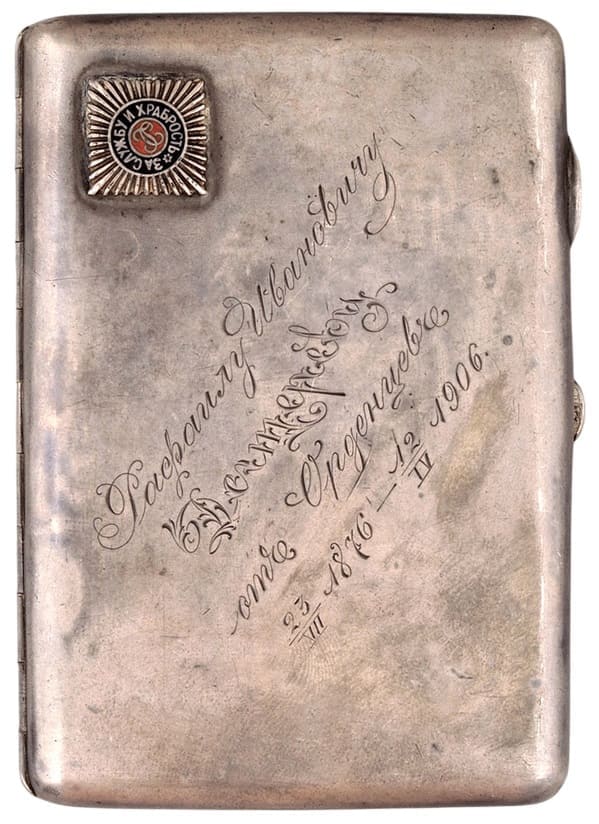 ЗА СЛУЖБУ И ХРАБРОСТЬ
Рафаилу Ивановичу
отъ Орденцевъ
23/VII 1876 – 12/IV 1906.